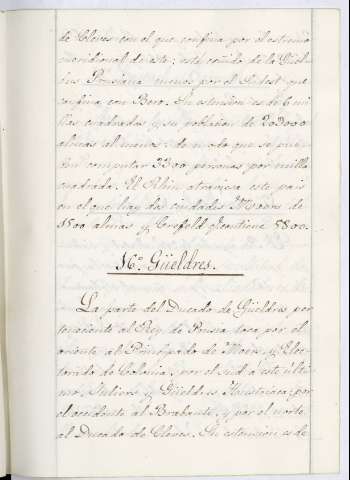 de Cleves con el que confina por el estremo
meridional de este; está ceñido de la Güel-
dres Prusiana menos por el Sudest que
confina con Berg. Su estension es de 6 mi-
llas cuadradas y su poblacion de 203000
almas al menos: de modo que se pue-
den computar 3300 personas por milla
cuadrada. El Rhin atraviesa este pais
en el que hay dos ciudades Moers de
1500 almas y Crefeld q contiene 5800.
16º Güeldres.
La parte del Ducado de Güeldres per
teneciente al Rey de Prusia toca por el
oriente al Principado de Moers y Elec-
torado de Colonia, por el sud a este ulti-
mo, Juliers y Güeldres Austriaca; por
el occidente al Brabante, y por el norte
al Ducado de Cleves. Su estension es de